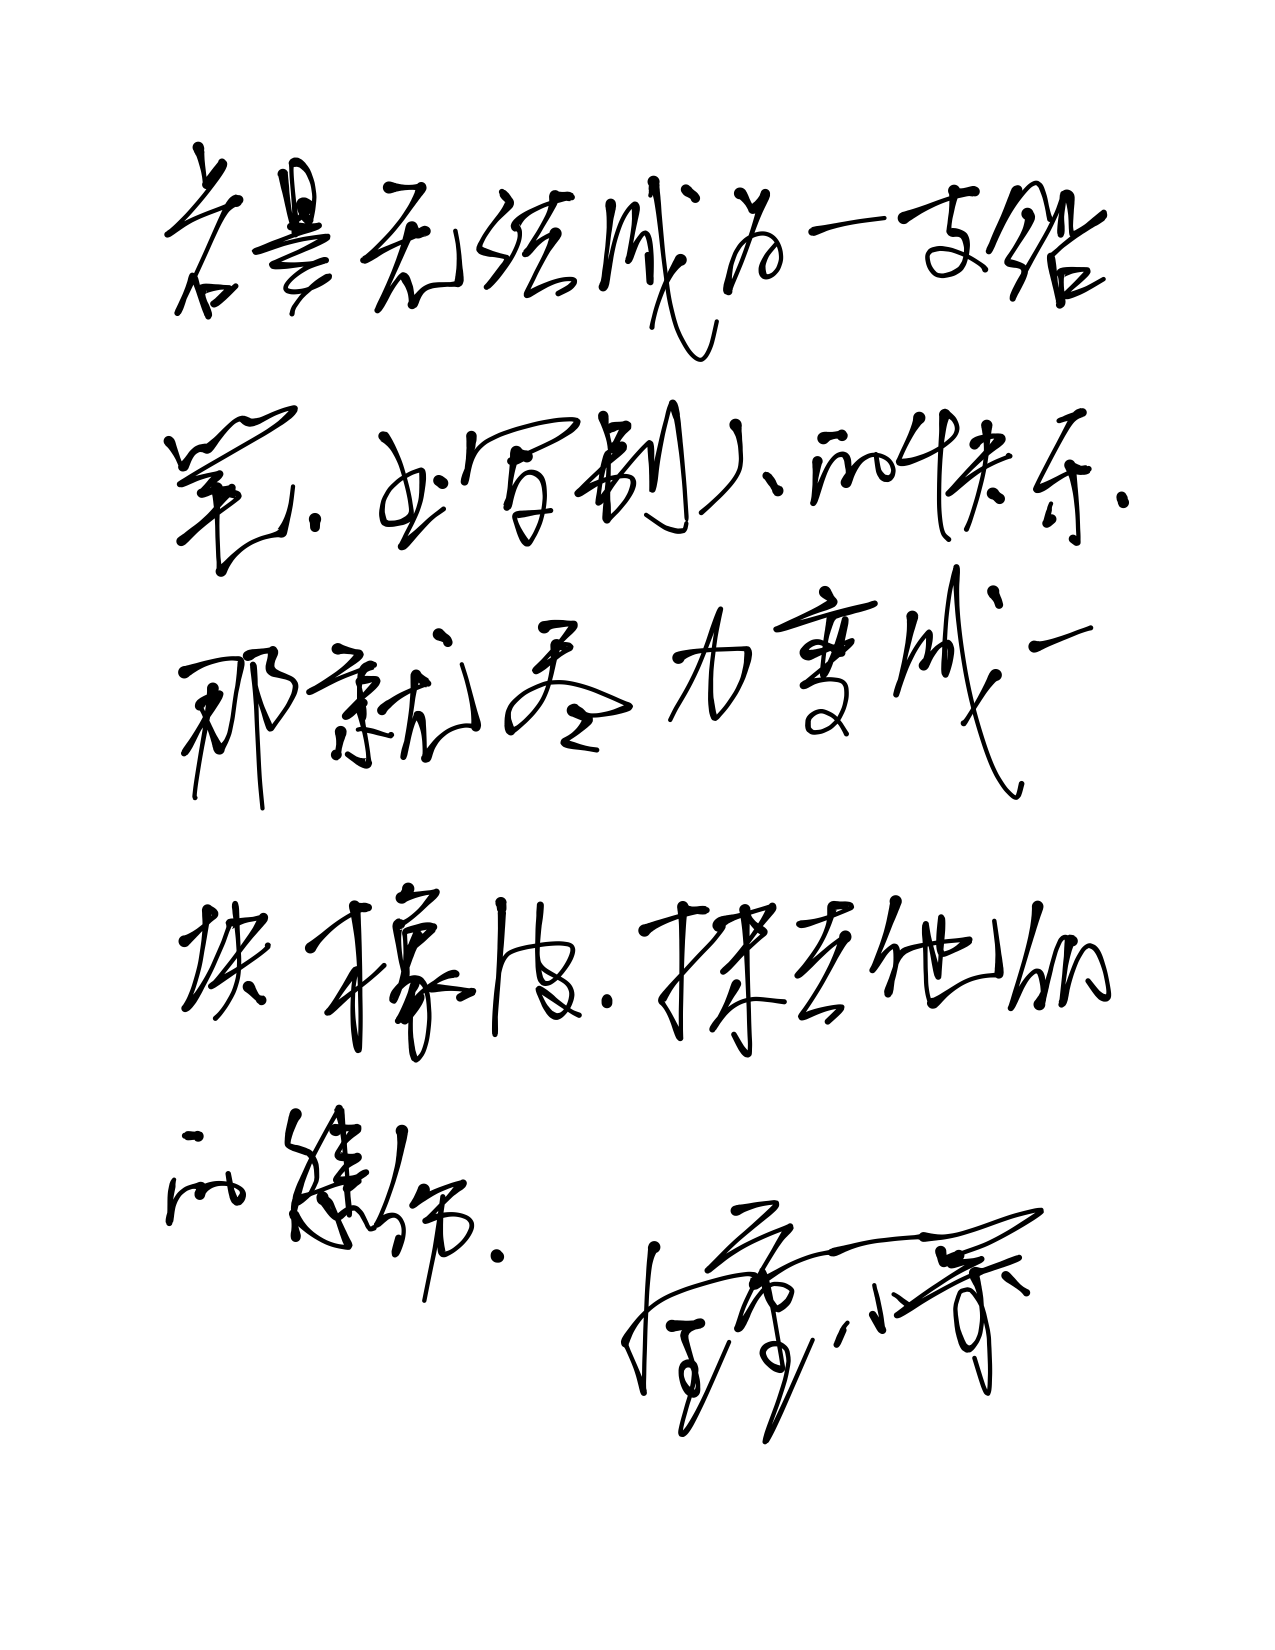 若是无法成为一支铅
笔.书写别人的快乐.
那就尽力变成一
块橡皮.擦去他们
的悲伤.